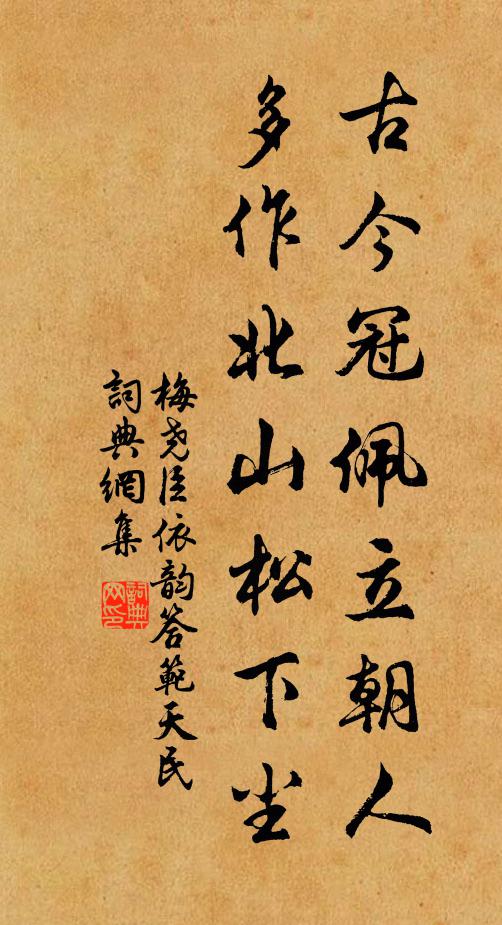 古今冠佩立朝人
多作北山松下尘
梅尧臣依韵答範天民
詞典網集
詞典网印